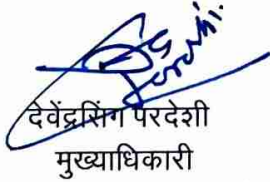 देवेंद्रसिंग परदेशी
मुख्याधिकारी